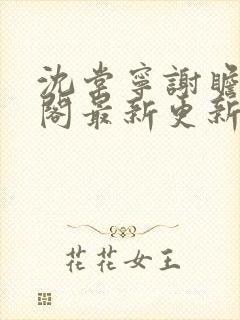 沈棠寧謝瞻
閣最新更新
花花女王